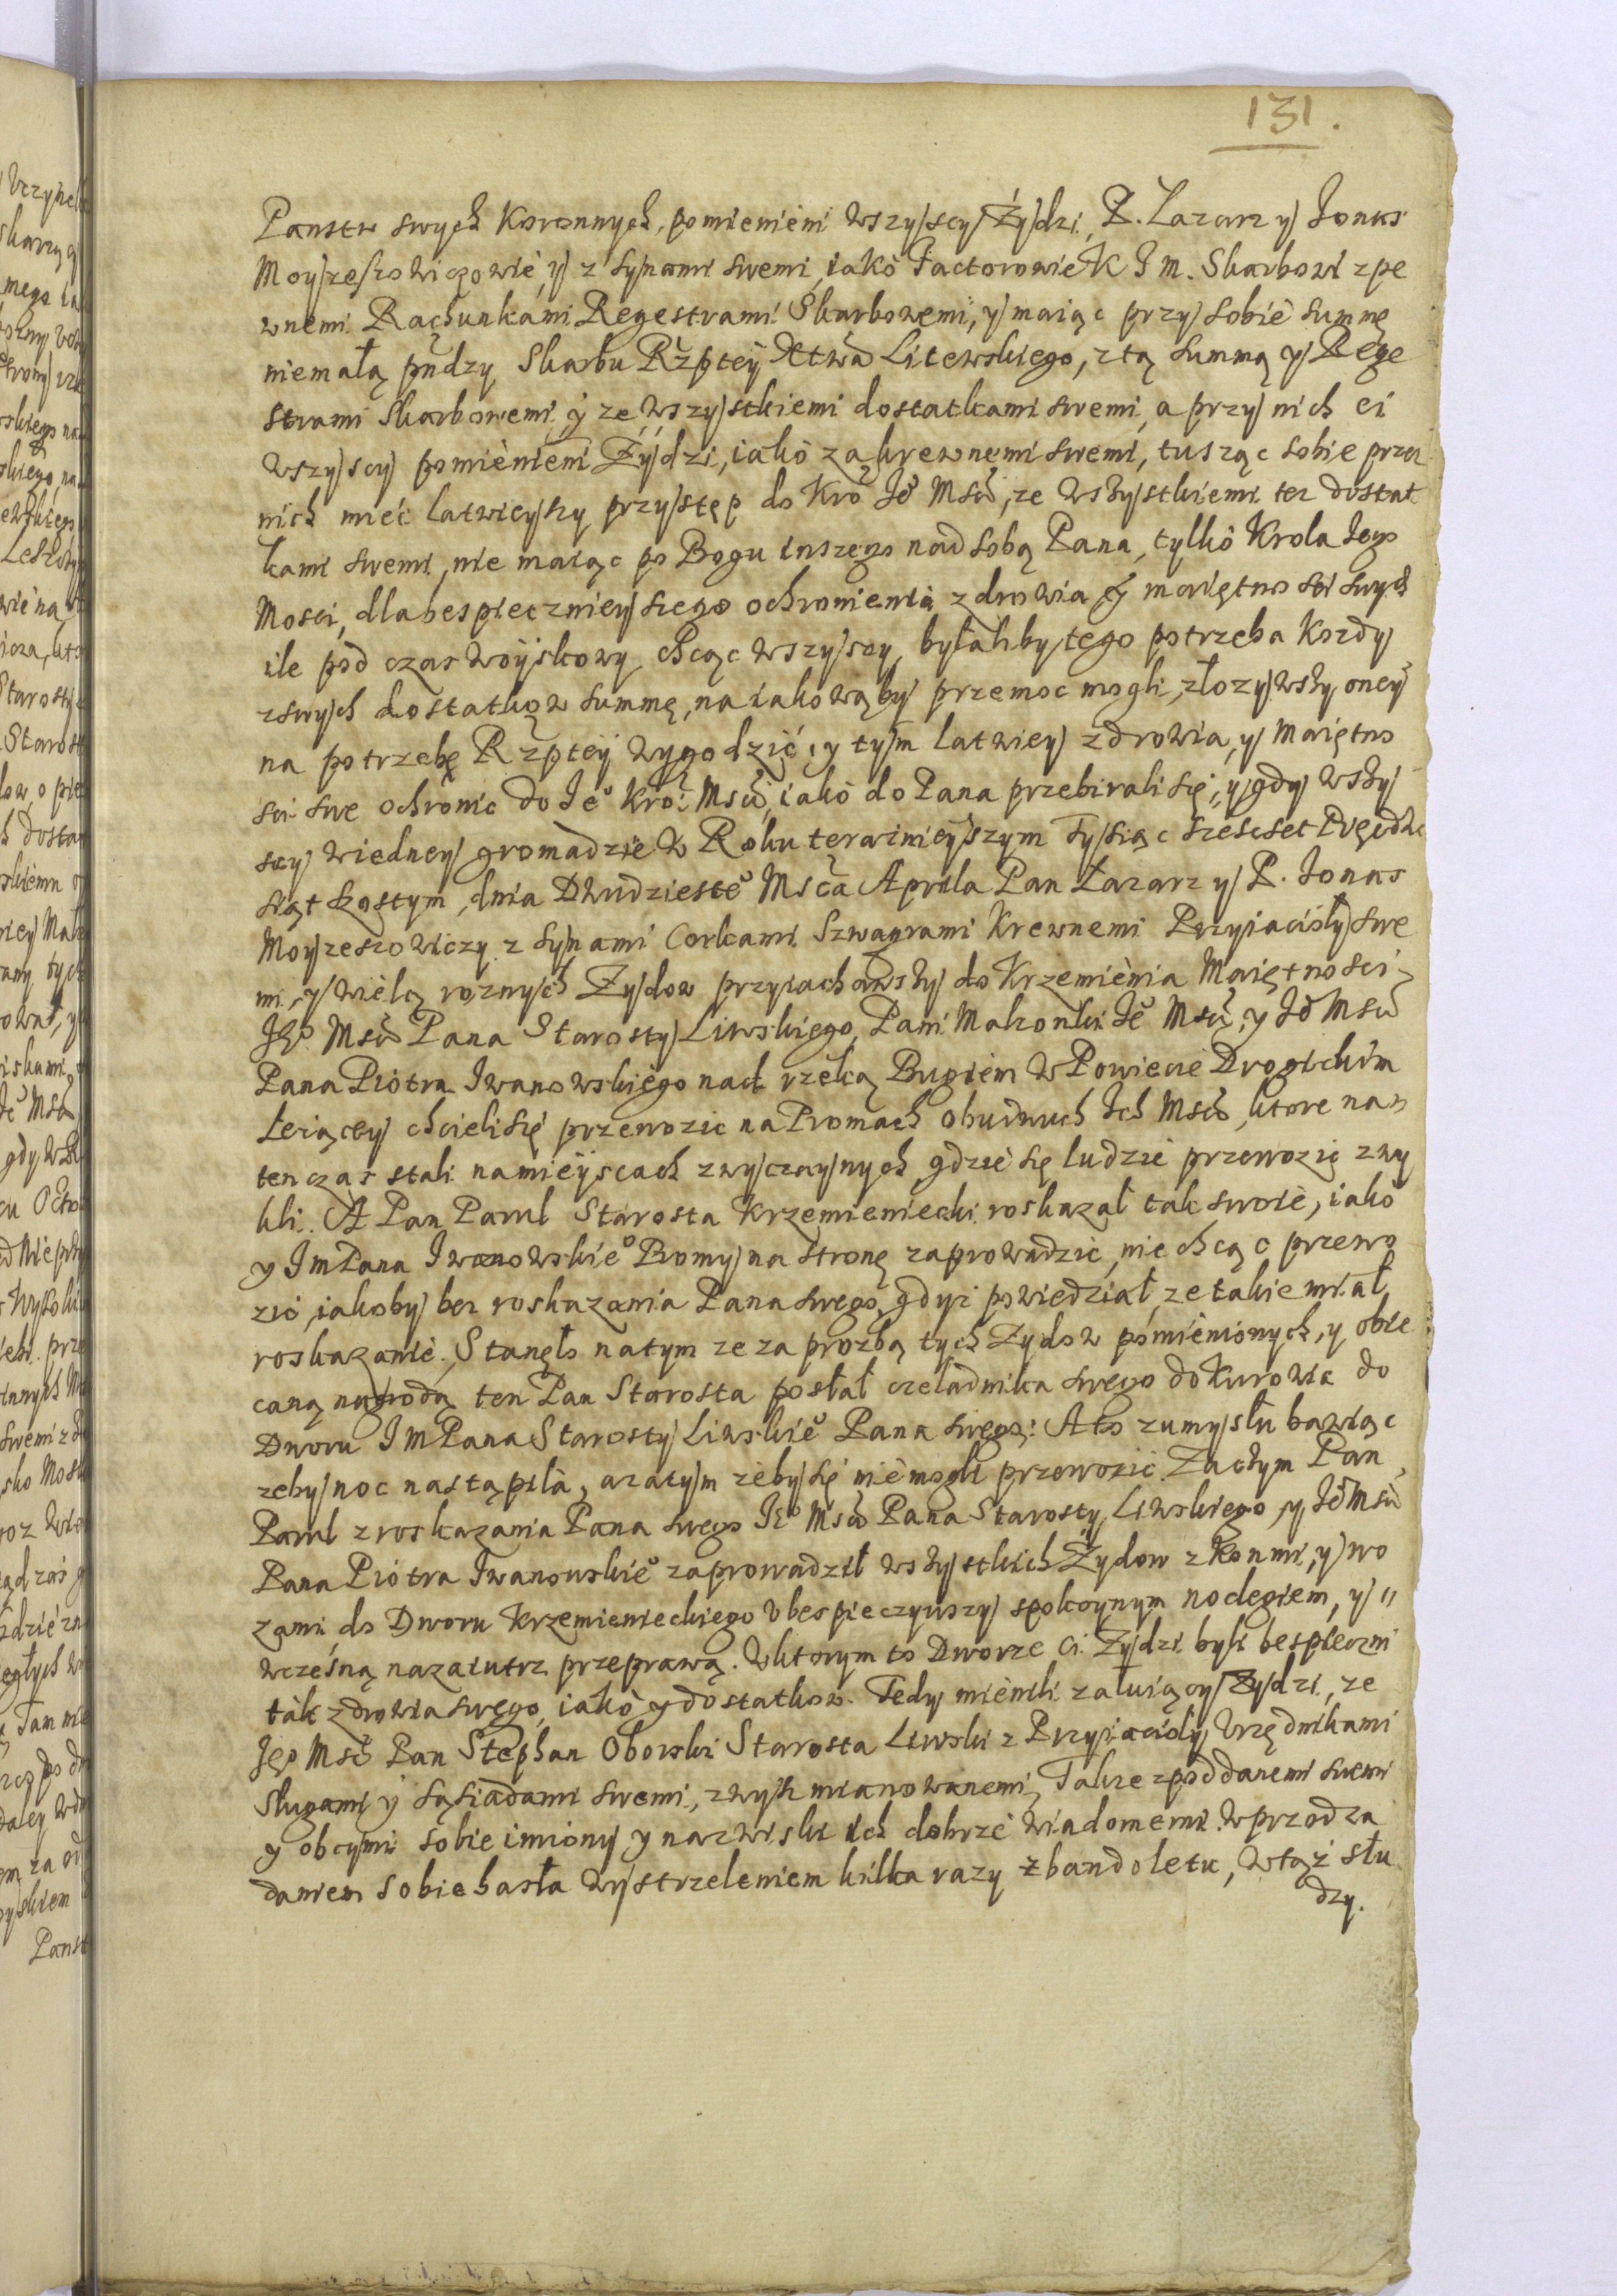 131.
Panstw swych Koronnych, pomienieni wszyscy Żydzi, P. Lazarz y Jonas
Moyzeszowiczowie, y z synami swemi, iako Factorowie K J M. Skarbowi z pe
wnemi Rachunkami Regestrami Skarbowemi, y maiąc przy sobie summę
niemałą pndzy Skarbu Rzptey Xtwa Litewskiego, z tą summą y Rege
strami Skarbowemi, y ze wszystkiemi dostatkami swemi, a przy nich ci
wszyscy pomienieni Żydzi, iako za krewnemi swemi, tusząc sobie przez
nich mieć latwieyszy przystęp do Kro Je° Msci, ze wszystkiemi tez dostat
kami swemi, nie maiąc po Bogu inszego nad sobą Pana, tylko Krola Jego
Mosci, dla bespiecznieyszego ochronienia zdrowia y maiętnosci swych
ile pod czas woyskowy, chcąc wszyscy, byłaliby tego potrzeba kozdy
z swych dostatkow summę, na iakowąby przemoc mogli, złozywszy oney
na potrzebę Rzptey wygodzić, y tym latwiey zdrowia, y maiętno
sci swe ochronic do Je° Kro: Msci, iako do Pana przebirali się, y gdy wszy
scy wiedney gromadzie w Roku teraznieyszym Tysiąc szescset Pięcdzie
siąt szostym, dnia Dwudzieste° Msca Aprila Pan Łazarz y P. Jonas
Moyzeszowiczy z synami Corkami Szwagrami Krewnemi Przyiacioły swe
mi, y wielą roznych Zydow przyiachawszy do Krzemienia Maiętnosci
Je° Msci Pana Starosty Liwskiego, Pani Malzonki Je° Msci, y Je° Msci
Pana Piotra Iwanowskiego nad rzeką Bugiem w Powiecie Drogickim
Lezącey chcieli się przewozic na Promach obudwuch Ich Msci, ktore na
ten czas stali na mieyscach zwyczaynych, gdzie się ludzie przewozic zwy
kli. A Pan Pawel Starosta Krzemieniecki roskazał tak swoie, iako
y Jm Pana Iwanowskie° Promy na stronę zaprowadzic, nie chcąc przewo
zic, iakoby bez roskazania Pana swego, gdyz powiedział, ze takie miał
roskazanie. Stanęło natym ze za prozbą tych Zydow pomienionych, y obie
caną nagrodą ten Pan Starosta posłał czeladnika swego do Kurowic do
Dworu JmPana Starosty Liwskie° Pana swego: A to zumysłu bawiąc
zeby noc nastąpila, a zatym zeby się niemogli przewozic. Zaczym Pan
Pawel z roskazania Pana swego Je° Msci Pana Starosty Liwskiego, y Je° Msci
Pana Piotra Iwanowskie° zaprowadził wszystkich Żydow z konmi, y wo
zami, do Dworu Krzemienieckiego Ubespieczywszy spokoynym noclegiem, y
wczesną nazaiutrz przeprawą. W ktorym to Dworze Ci Żydzi byli bespieczni
tak zdrowia swego, iako y dostatkow. Tedy mienili załuiący Zydzi, ze
Je° Msc Pan Stephan Oborski Starosta Liwski z Przyiacioly, Urzędnikami
Sługami y sąsiadami swemi, zwysz mianowanemi, Takze z poddanemi swemi
y obcymi sobie imiony y nazwiski ich dobrze wiadomemi. W przod za
daniem sobie hasła wystrzeleniem kilka razy z bandoletu, w tąz słu
dzy.